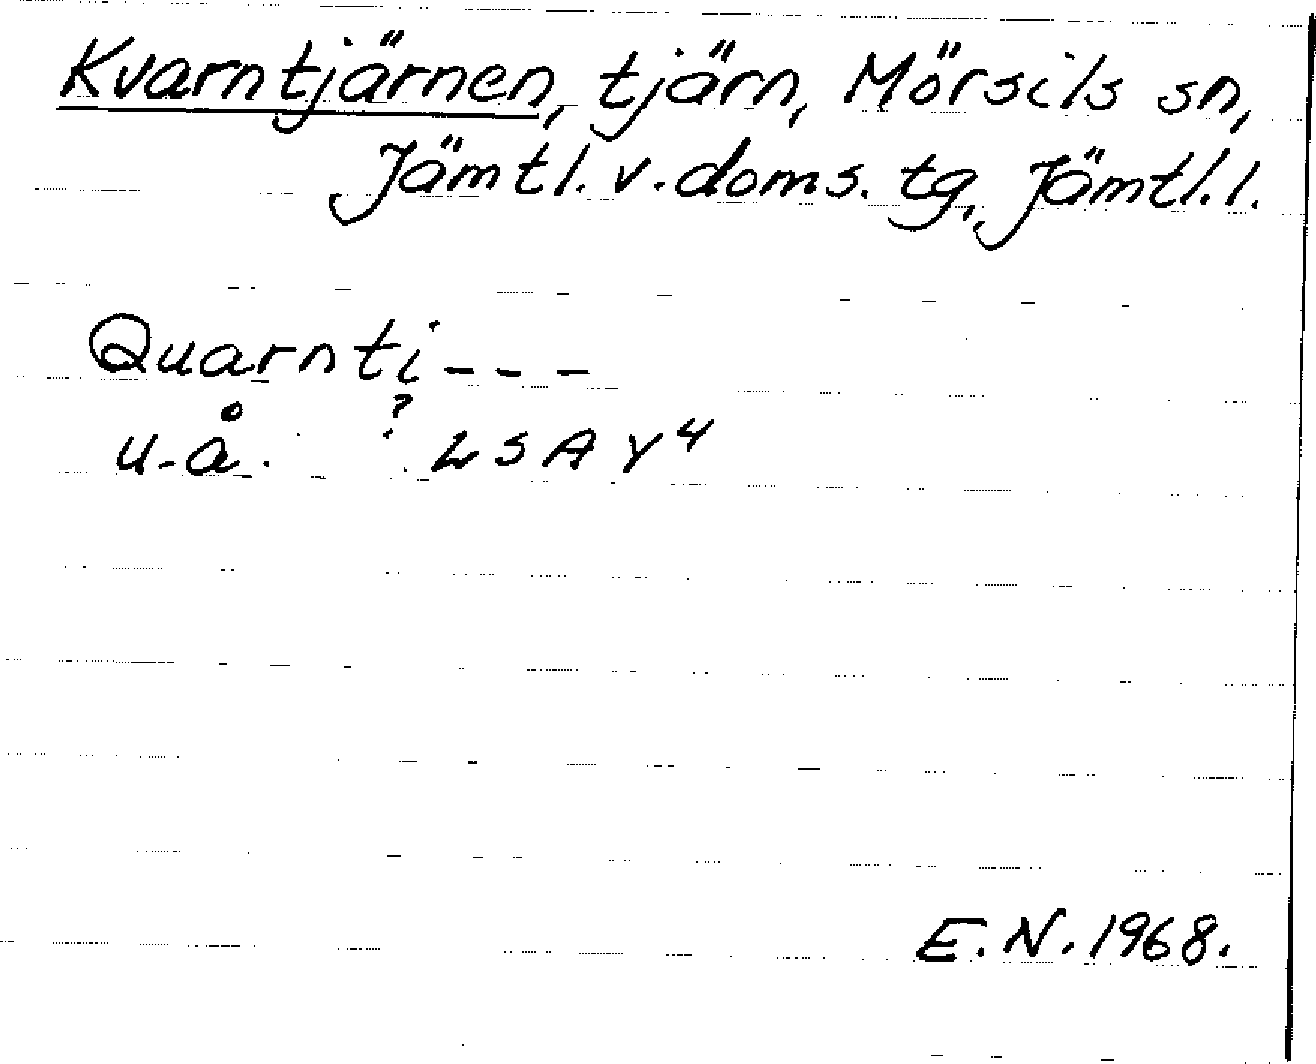 Kvarntjärnen, tjärn, Mörsils sn,
Jämtl. v. doms. tg, Jämtl. l.
Quarnti---
u.å. ? LSA Y4
E.N. 1968.